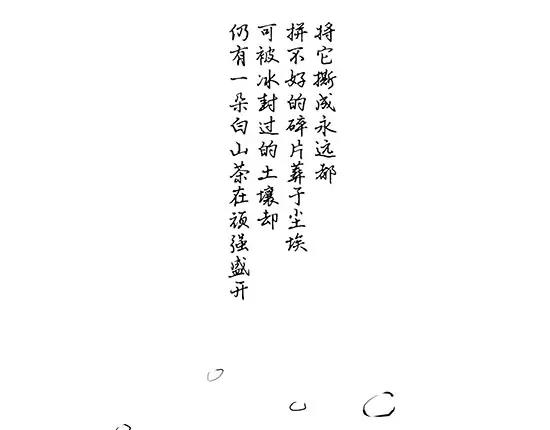 将它撕成永远都
拼不好的碎片葬于尘埃
可被冰封过的土壤却
仍有一朵白山茶在顽强盛开